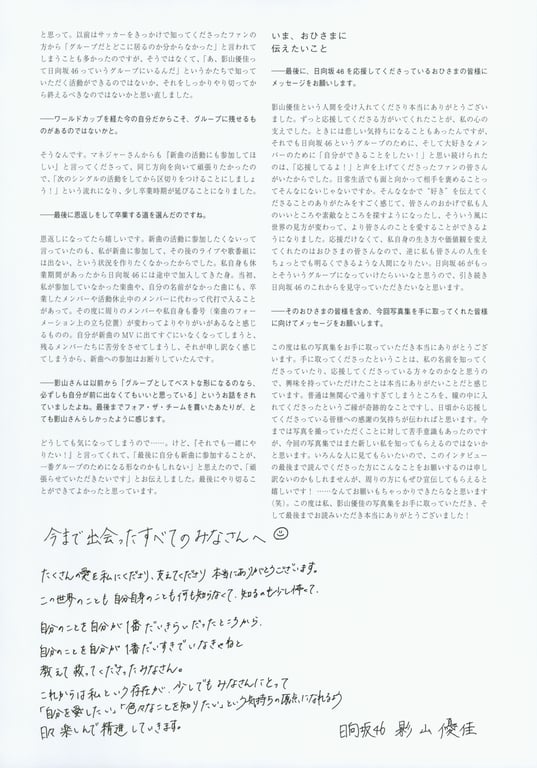 と思って。以前はサッカーをきっかけで知ってくださったファンの
方から「グループだとどこに居るのか分からなかった」と言われて
しまうことも多かったのですが、そうではなくて、「あ、影山優佳っ
て日向坂46っていうグループにいるんだ」というかたちで知って
いただく活動ができるのではないか、それをしっかりやり切ってか
ら終えるべきなのではないかと思い直しました。
——ワールドカップを経た今の自分だからこそ、グループに残せるも
のがあるのではないかと。
そうなんです。マネジャーさんからも「新曲の活動にも参加してほ
しい」と言ってくださって、同じ方向を向いて頑張りたかったの
で、「次のシングルの活動をしてから区切りをつけることにしましょ
う!」という流れになり、少し卒業時期が延びることになりました。
——最後に恩返しをして卒業する道を選んだのですね。
恩返しになってたら嬉しいです。新曲の活動に参加したくないって
言っていたのも、私が新曲に参加して、その後のライブや歌番組に
は出ない、という状況を作りたくなかったからでした。私自身も休
業期間があったから日向坂46には途中で加入してきた身。当初、
私が参加していなかった楽曲や、自分の名前がなかった曲にも、卒
業したメンバーや活動休止中のメンバーに代わって代打で入ること
があって。その度に周りのメンバーや私自身も番号(楽曲のフォー
メーション上の立ち位置)が変わってよりやりがいがあるなと感じ
るものの。自分が新曲のMVに出てすぐにいなくなってしまうと、
残るメンバーたちに苦労をさせてしまうし、それが申し訳なく感じ
てしまうから、新曲への参加はお断りしていたんです。
——影山さんは以前から「グループとしてベストな形になるのなら、
必ずしも自分が前に出なくてもいいと思っている」というお話をされ
ていましたよね。最後までフォア・ザ・チームを貫いたあたりが、と
ても影山さんらしかったように感じます。
どうしても気になってしまうので……。けど、「それでも一緒にや
りたい!」と言ってくれて、「最後に自分も新曲に参加することが、
一番グループのためになる形なのかもしれない」と思えたので、「頑
張らせていただきたいです」とお伝えしました。最後にやり切るこ
とができてよかったと思っています。
いま、おひさまに
伝えたいこと
——最後に、日向坂46を応援してくださっているおひさまの皆様に
メッセージをお願いします。
影山優佳という人間を受け入れてくださり本当にありがとうござい
ました。ずっと応援してくださる方がいてくれたことが、私の心の
支えでした。ときには悲しい気持ちになることもあったんですが、
それでも日向坂46というグループのために、そして大好きなメン
バーのために「自分ができることをしたい!」と思い続けられたの
は、「応援してるよ!」と声を上げてくださったファンの皆さん
がいたからでした。日常生活でも面と向かって相手を褒めることっ
てそんなにないじゃないですか。そんななかで“好き”を伝えてく
ださることのありがたみをすごく感じて、皆さんのおかげで私も人
のいいところや素敵なところを探すようになったし、そういう風に
世界の見方が変わって、より皆さんのことを愛することができるよ
うになりました。応援だけなくて、私自身の生き方や価値観を変え
てくれたのはおひさまの皆さんなので、逆に私も皆さんの人生を
ちょっとでも明るくできるような人間になりたい。日向坂46がもっ
とそういうグループになっていけたらいいなと思うので、引き続き
日向坂46のこれからを見守っていただきたいなと思います。
——そのおひさまの皆様を含め、今回写真集を手に取ってくれた皆様
に向けてメッセージをお願いします。
この度は私の写真集をお手に取っていただき本当にありがとうござ
います。手に取ってくださったということは、私の名前を知ってくだ
さっていたり、応援してくださっている方々なのかなと思うの
で、興味を持っていただけたことは本当にありがたいことだと感じ
ています。普通は無関心で通りすぎてしまうところを、輪の中に入
れてくださったというご縁が奇跡的なことですし、日頃から応援し
てくださっている皆様への感謝の気持ちが伝わればと思います。今
までは写真を撮っていただくことに対して苦手意識もあったのです
が、今回の写真集ではまた新しい私を知ってもらえるのではないか
と思います。いろんな人に見てもらいたいので、このインタビュー
の最後まで読んでくださった方にこんなことをお願いするのは申し
訳ないのかもしれませんが、周りの方にもぜひ宣伝してもらえると
嬉しいです! ……なんてお願いもちゃっかりできたらなと思います
(笑)。この度は私、影山優佳の写真集をお手に取っていただき、そ
して最後までお読みいただき本当にありがとうございました!
今まで出会ったすべてのみなさんへ☺
たくさんの愛を私にくださり、支えてくださり 本当にありがとうございます。
この世界のことも 自分自身のことも何も知らなくて、知るのも少し怖くて、
自分のことを自分が1番だいきらいだったところから、
自分のことを自分が1番だいすきでいなきゃねと
教えて救ってくださったみなさん。
これからは私という存在が、少しでもみなさんにとって
「自分を愛したい」「色々なことを知りたい」という気持ちの原点になれるよう
日々楽しんで精進していきます。
日向坂46 影山優佳